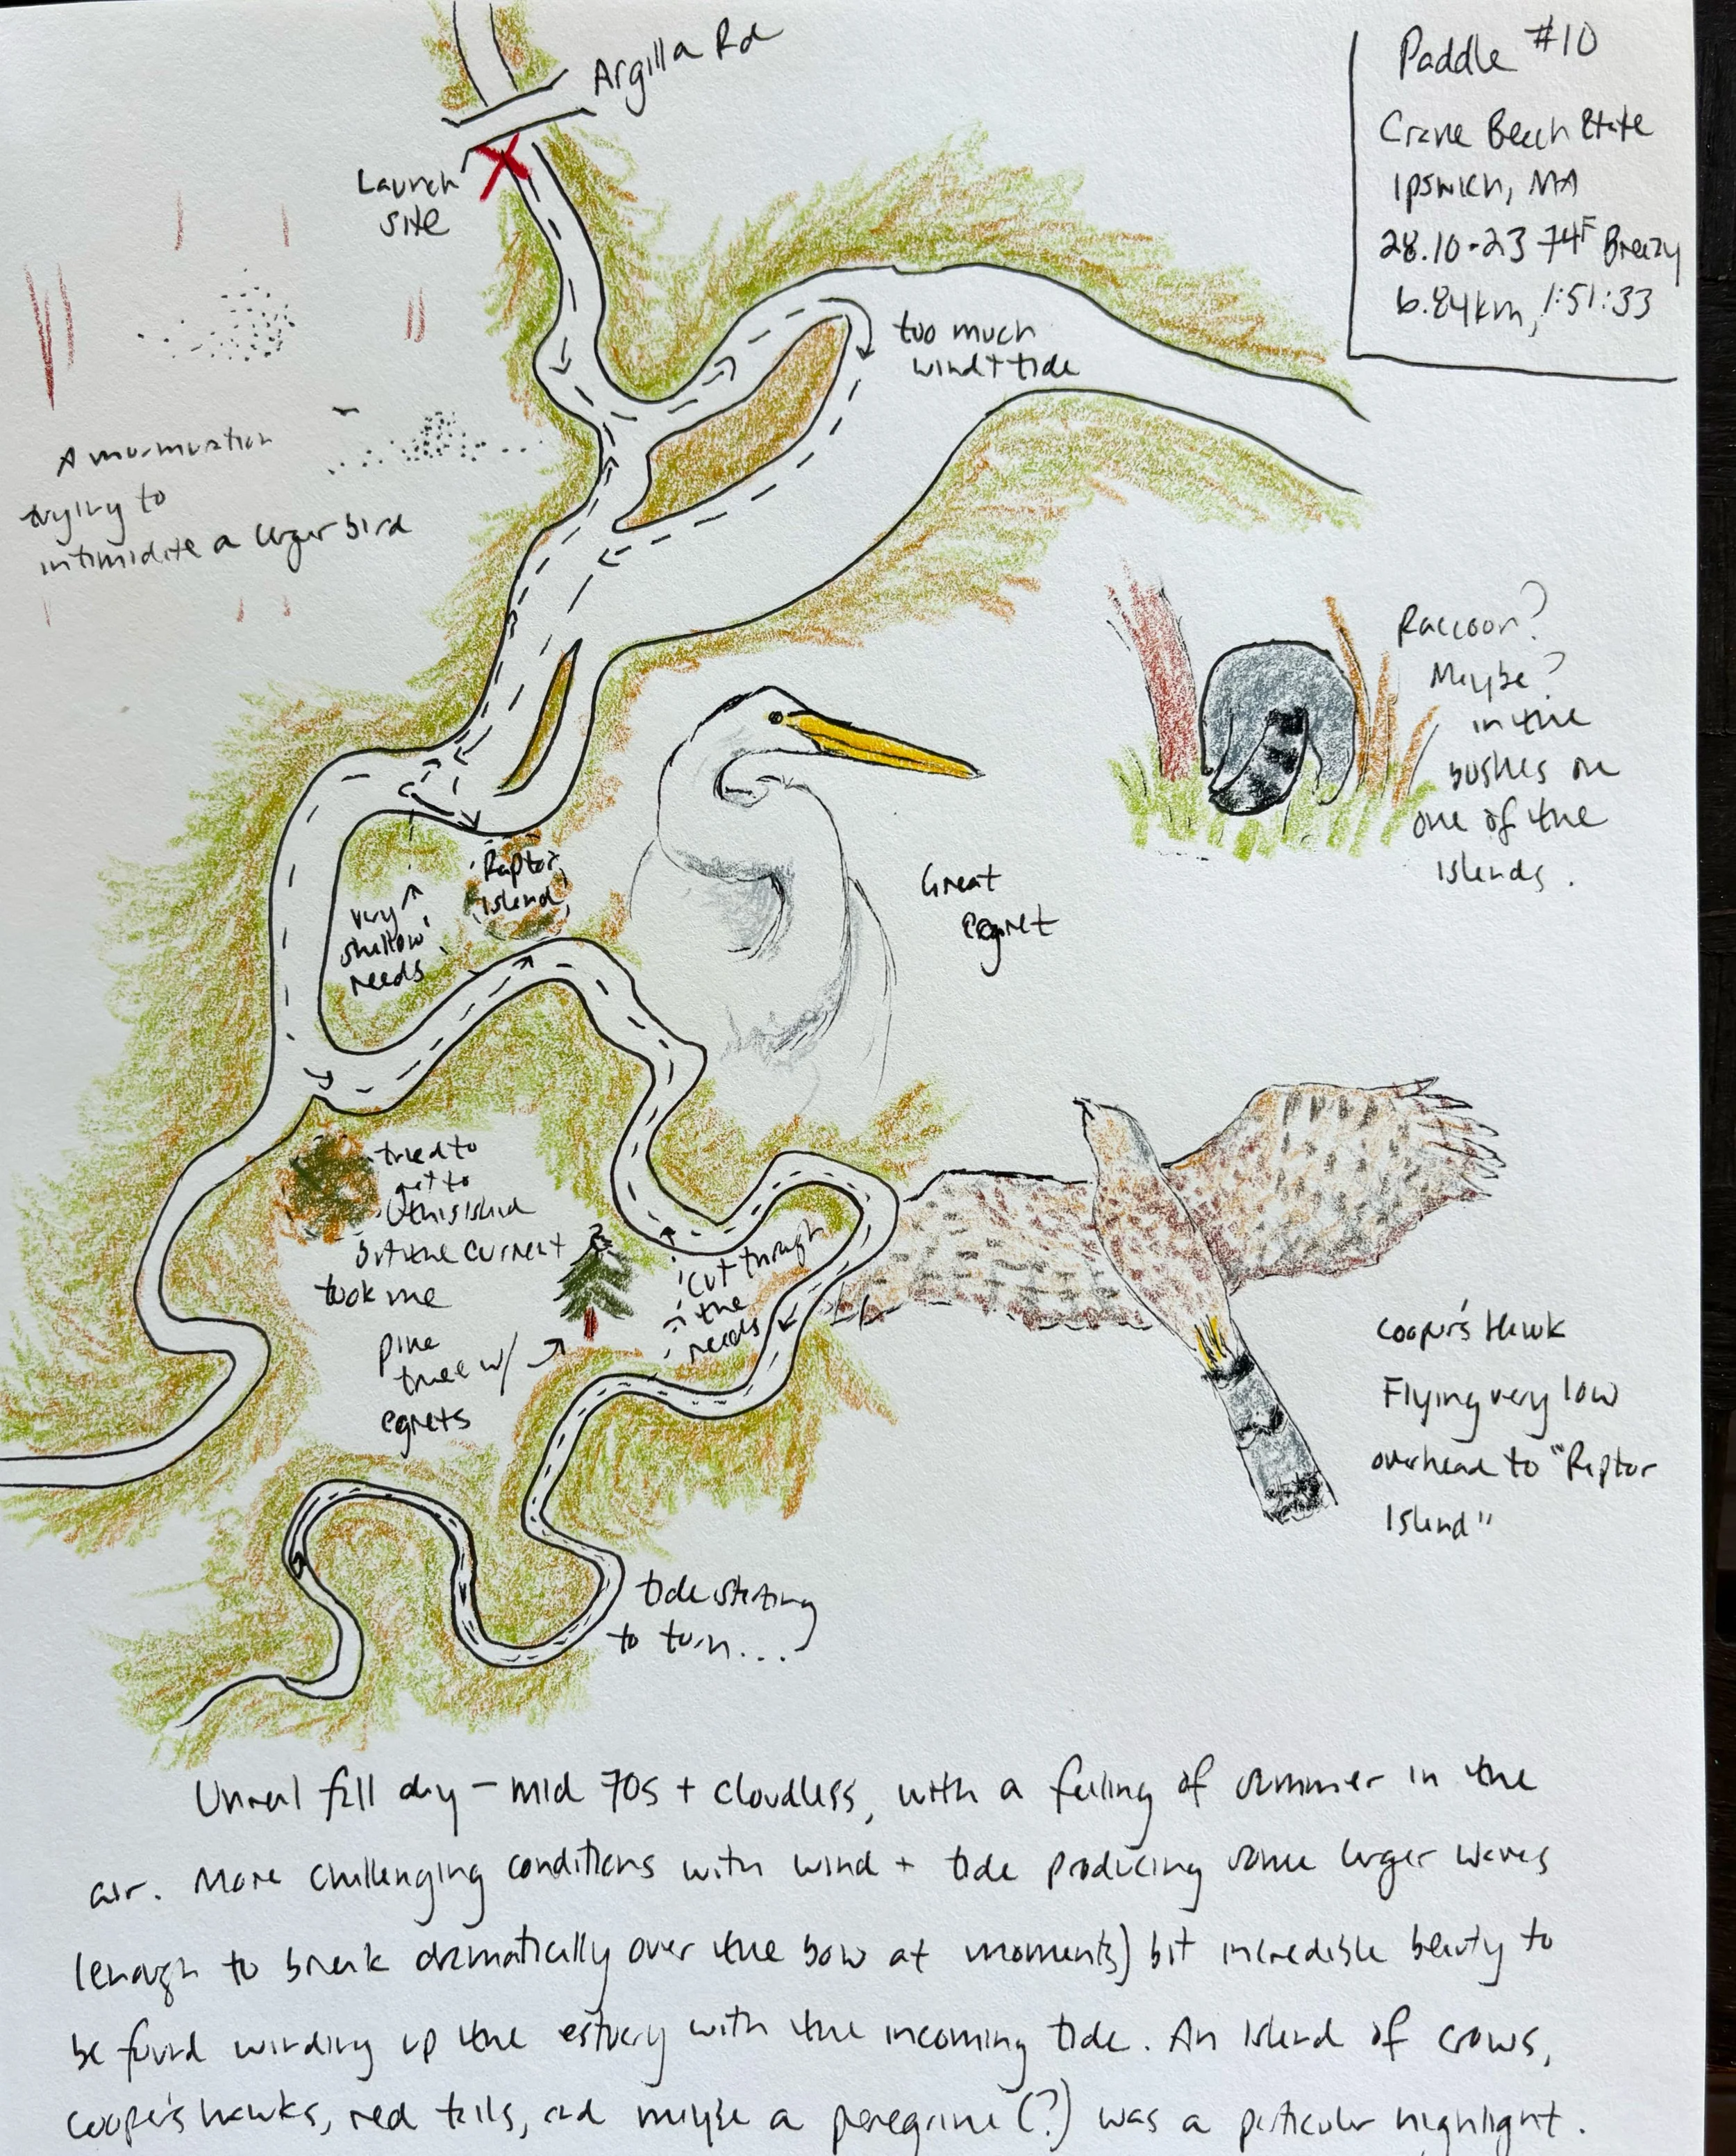 Argilla Rd
Launch
site
Paddle #10
Crane Beach Estate
Ipswich, MA
28.10.23 74F Breezy
6.84km, 1:51:33
too much
wind + tide
A murmuration
trying to
intimidate a larger bird
Raccoon?
Maybe?
in the
bushes on
one of the
islands.
Raptor
island
very
shallow
reeds
Great
egret
tried to
get to
this island
but the current
took me
pine
tree w/
egrets
cut through
the
reeds
Cooper's Hawk
Flying very low
overhead to "Raptor
Island"
tide starting
to turn...
Unreal fall day – mid 70s + cloudless, with a feeling of summer in the
air. More challenging conditions with wind + tide producing some larger waves
(enough to break dramatically over the bow at moments) but incredible beauty to
be found winding up the estuary with the incoming tide. An island of crows,
cooper's hawks, red tails, and maybe a peregrine (?) was a particular highlight.